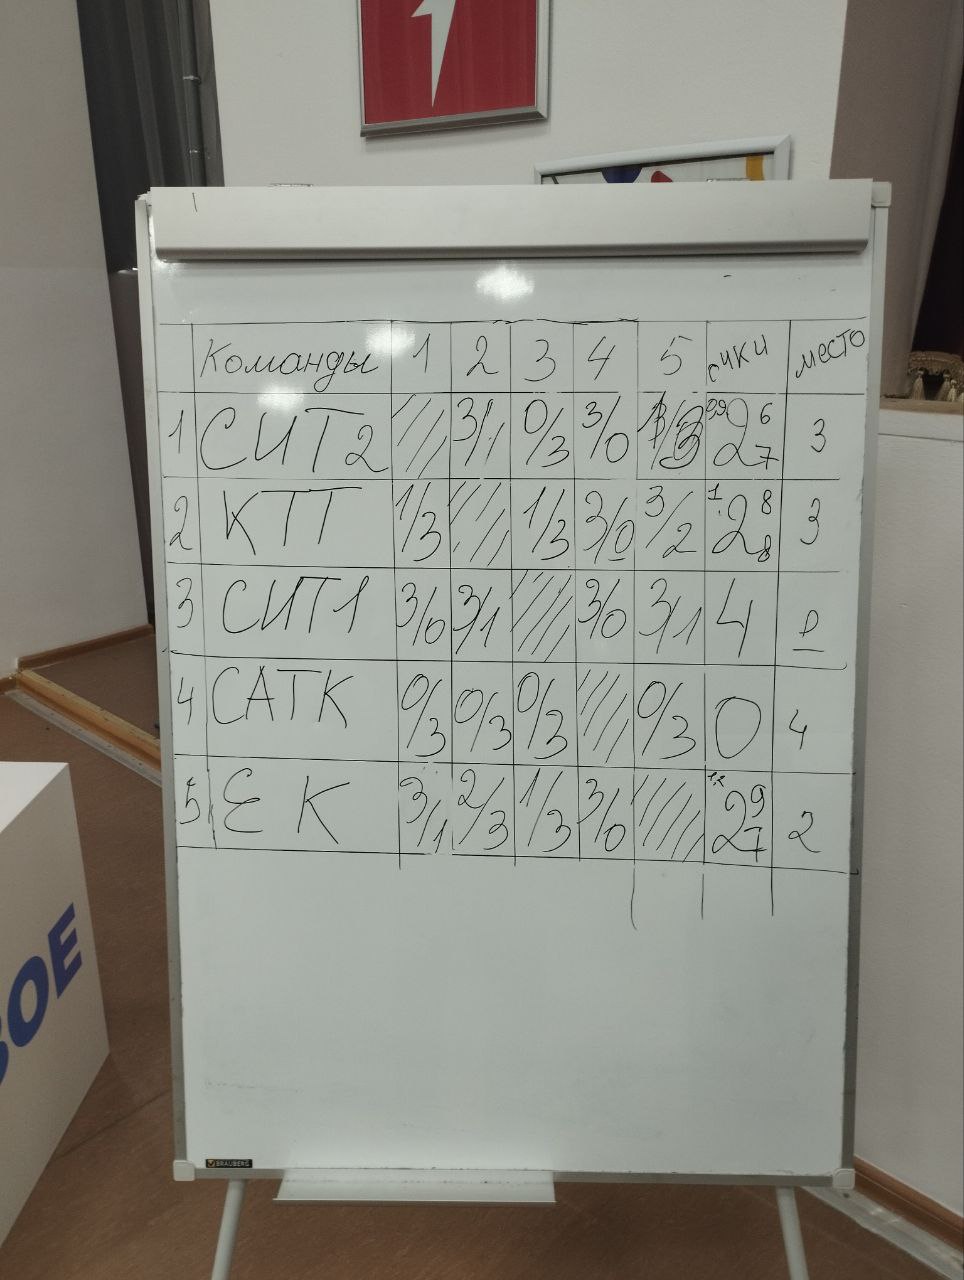 Команды 1 2 3 4 5 очки место
1 СИТ2 3/1 0/3 3/0 1/3 0,9 2 6/7 3
2 КТТ 1/3 1/3 3/0 3/2 1. 2 8/8 3
3 СИТ1 3/0 3/1 3/0 3/1 4
4 САТК 0/3 0/3 0/3 0/3 0 4
5 ЕК 3/1 2/3 1/3 3/0 2 9/7 2
ВОЕ
BRAUBERG